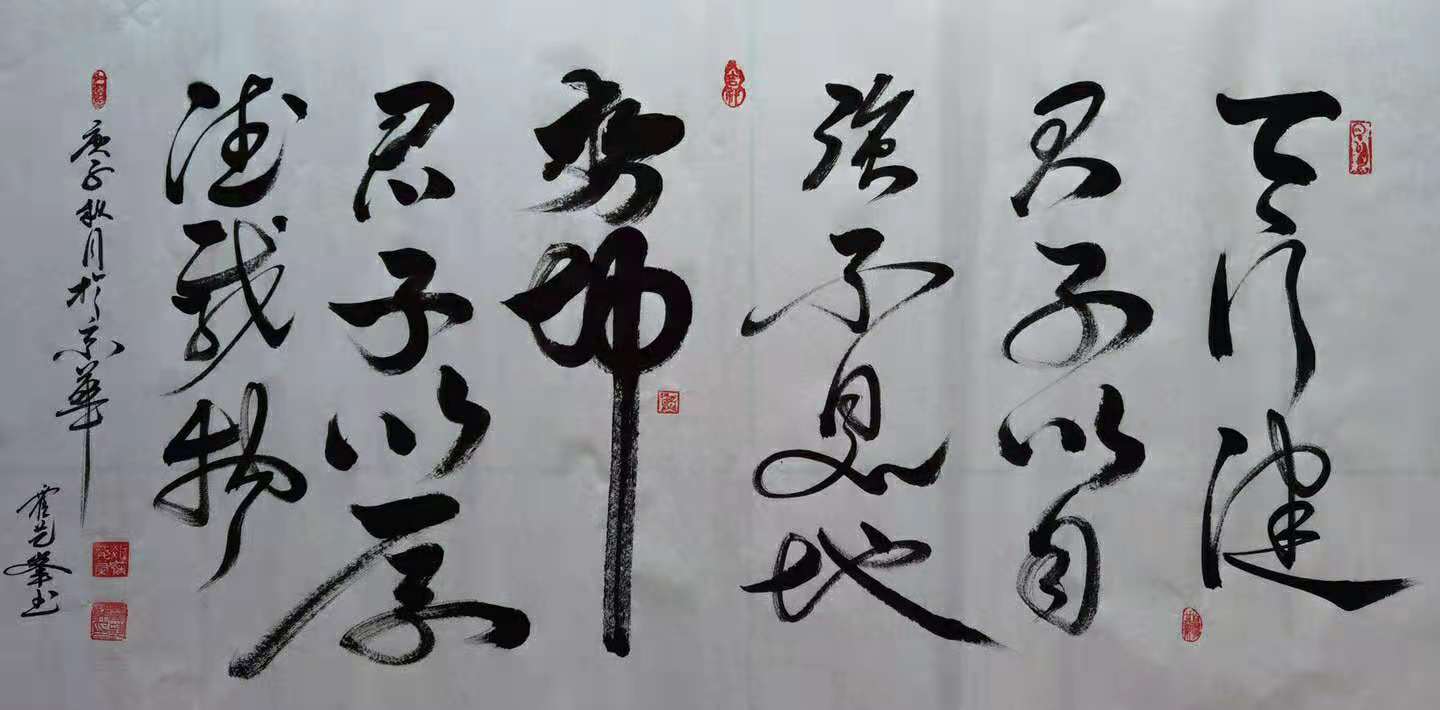 天行健
君子以自
強不息地
势坤
君子以厚
德载物
庚子秋月於京華
霍艺峯书